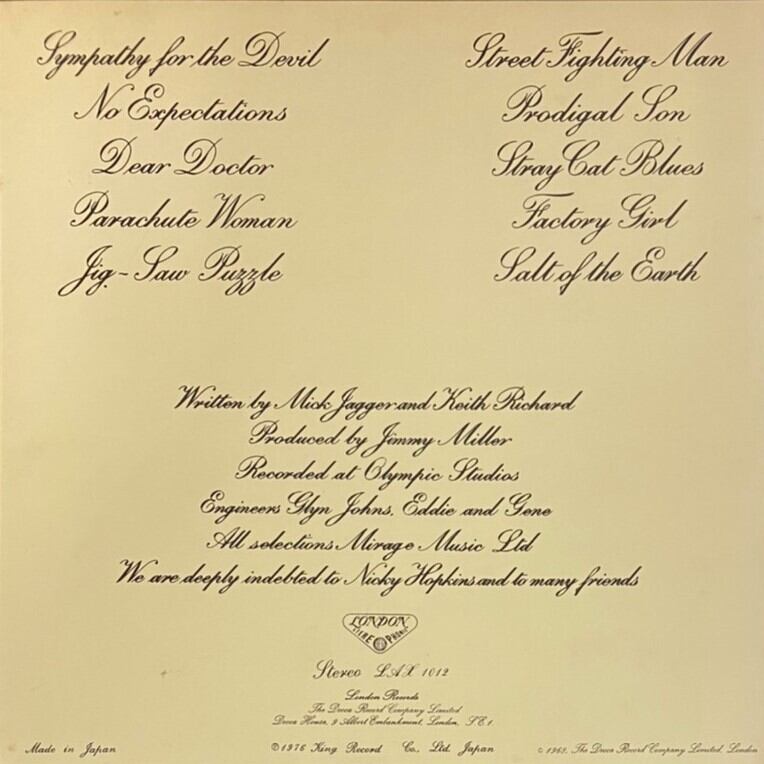 Sympathy for the Devil
No Expectations
Dear Doctor
Parachute Woman
Jig-Saw Puzzle
Street Fighting Man
Prodigal Son
Stray Cat Blues
Factory Girl
Salt of the Earth
Written by Mick Jagger and Keith Richard
Produced by Jimmy Miller
Recorded at Olympic Studios
Engineers Glyn Johns, Eddie and Gene
All selections Mirage Music Ltd
We are deeply indebted to Nicky Hopkins and to many friends
LONDON
STEREOPHONIC
Stereo LAX 1012
London Records
The Decca Record Company Limited
Decca House, 9 Albert Embankment, London, S.E.1
Made in Japan
©1976 King Record Co., Ltd. Japan
© 1968, The Decca Record Company Limited, London